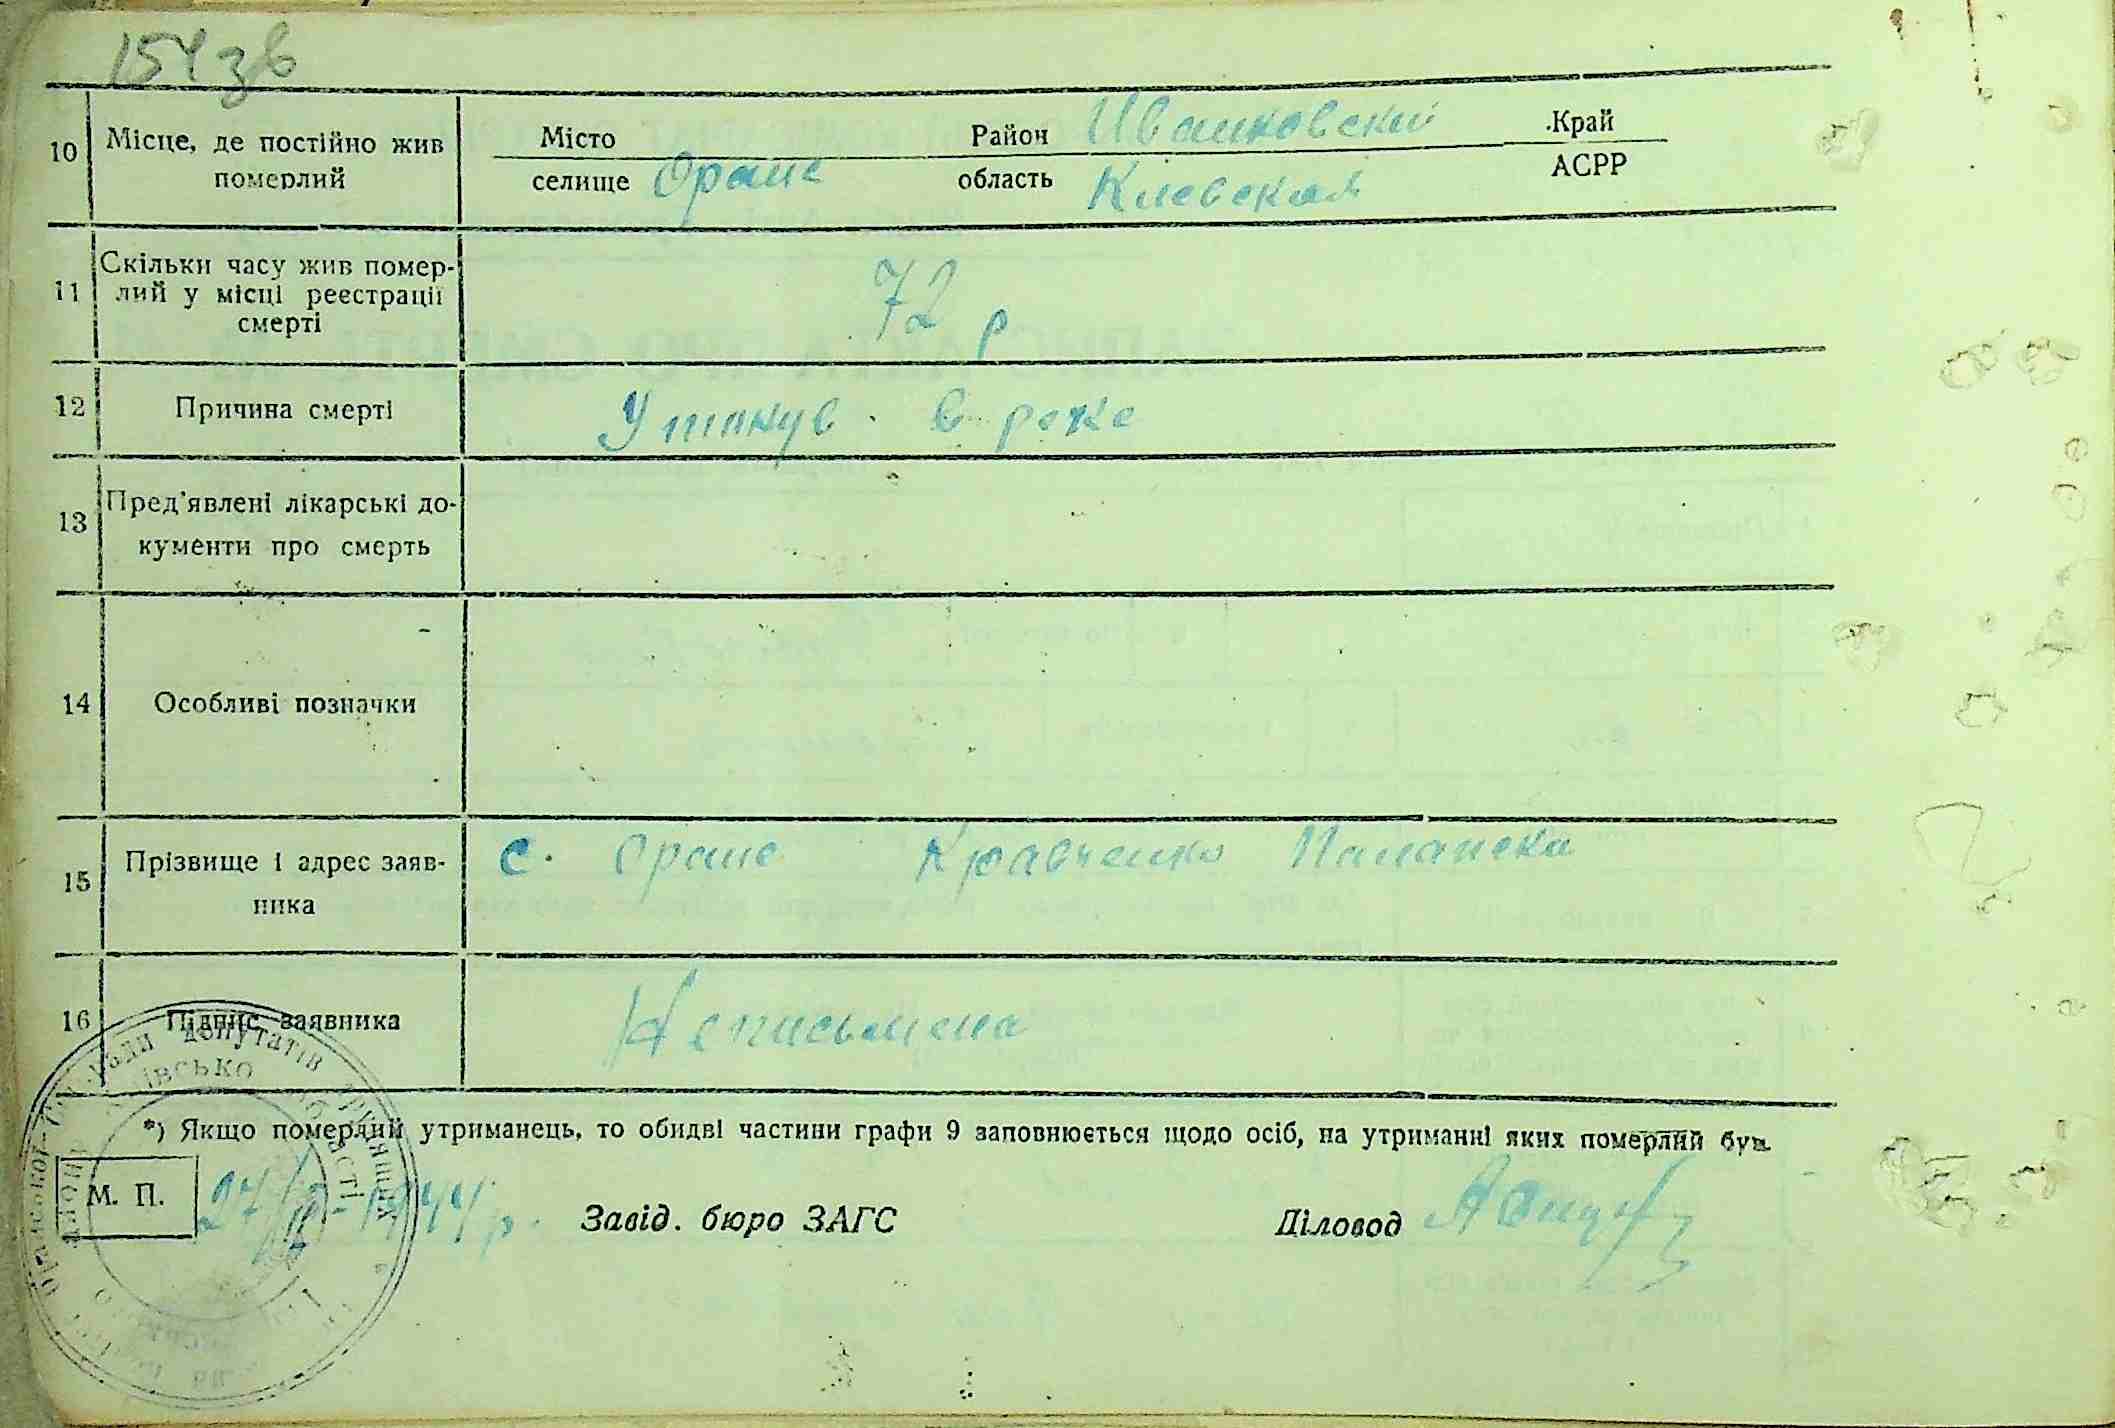 154 зв
10 Місце, де постійно жив померлий
Місто Район Иванковский Край
селище Оране область Киевская АСРР
11 Скільки часу жив померлий у місці реєстрації смерті
72 р
12 Причина смерті Утонув в реке
13 Пред'явлені лікарські документи про смерть
14 Особливі позначки
15 Прізвище і адрес заявника с. Оране Кравченко
16 Підпис заявника Неписьмена
*) Якщо померлий утриманець, то обидві частини графи 9 заповнюється щодо осіб, на утриманні яких померлий був.
М. П. 1944 р. Завід. бюро ЗАГС Діловод